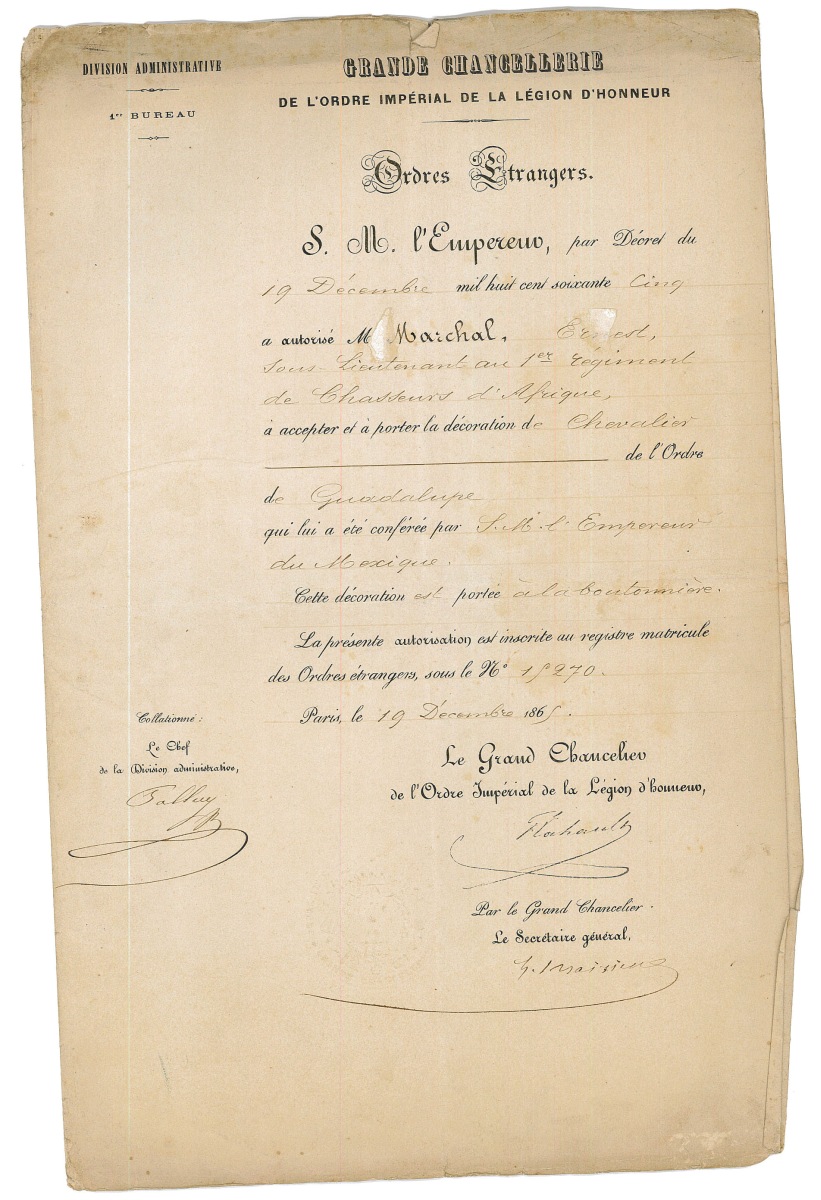 DIVISION ADMINISTRATIVE
1er BUREAU
GRANDE CHANCELLERIE
DE L'ORDRE IMPÉRIAL DE LA LÉGION D'HONNEUR
Ordres Étrangers.
S. M. l'Empereur, par Décret du
19 Décembre mil huit cent soixante Cinq
a autorisé M Marchal, Ernest,
Sous-Lieutenant au 1er régiment
de Chasseurs d'Afrique,
à accepter et à porter la décoration de Chevalier
de l'Ordre
de Guadalupe
qui lui a été conférée par S. M. l'Empereur
du Mexique.
Cette décoration est portée à la boutonnière.
La présente autorisation est inscrite au registre matricule
des Ordres étrangers, sous le No 15270.
Paris, le 19 Décembre 1865.
Collationné :
Le Chef
de la Division administrative,
Le Grand Chancelier
de l'Ordre Impérial de la Légion d'honneur,
Flahault
Par le Grand Chancelier.
Le Secrétaire général,